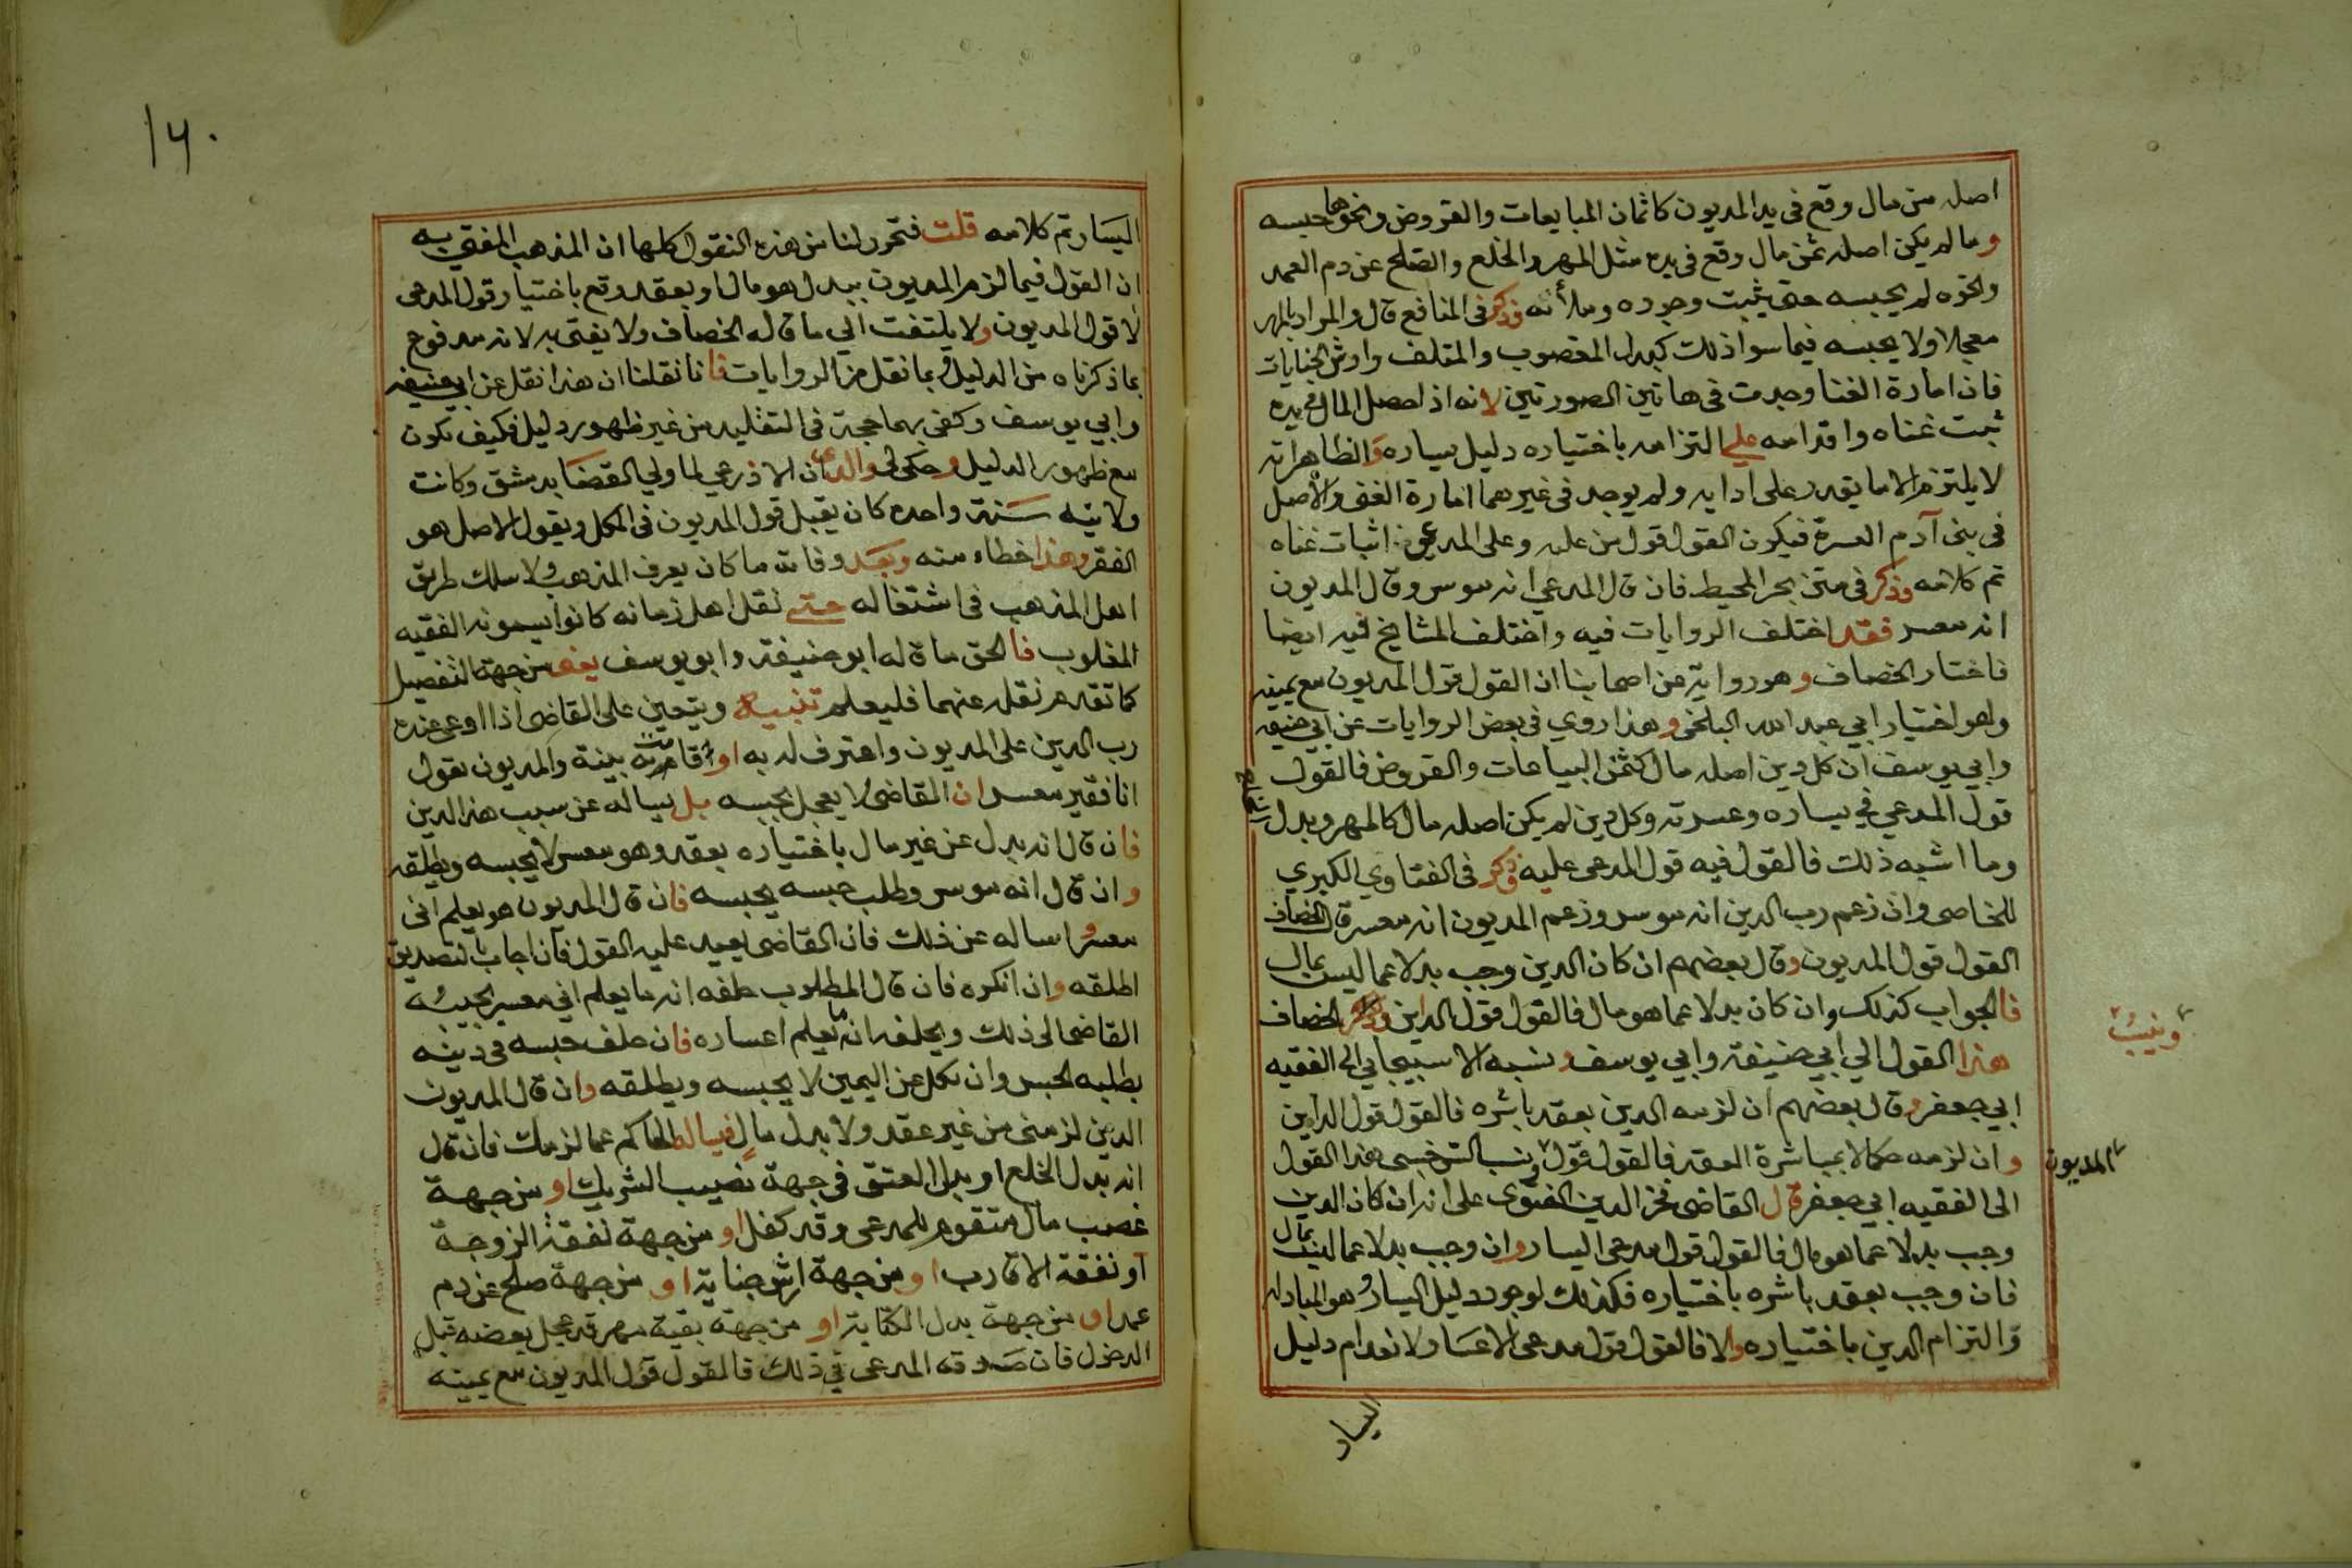 اصله من مال وقع في يد المديون كاثمان المبايعات والقروض ونحوها حبسه
وما لم يكن اصله ثمن مال وقع في يده مثل المهر والخلع والصلح عن دم العمد
ونحوه لم يحبسه حتى يثبت وجوده وملأنه وذكر في المنافع قال والمراد بالمهر
معجلا ولا يحبسه فيما سوا ذلك كبدل المغصوب والمتلف وارش الجنايات
فان امارة الغنا وجدت في هاتين الصورتين لانه اذا حصل المال في يده
ثبت غناه واقدامه علي التزامه باختياره دليل يساره والظاهر انه
لا يلتزم الا ما يقدر على ادايه ولم يوجد في غيرهما امارة الغنى والاصل
في بني آدم العسرة فيكون القول قول من عليه وعلى المدعي اثبات غناه
تم كلامه وذكر في متن بحر المحيط فان قال المدعي انه موسر وقال المديون
انه معسر فقد اختلف الروايات فيه واختلف المشايخ فيه ايضا
فاختار الخصاف وهو رواية عن اصحابنا ان القول قول المديون مع يمينه
وهو اختيار ابي عبد الله البلخي وهذا روي في بعض الروايات عن ابي حنيفه
وابي يوسف ان كل دين اصله مال كثمن البياعات والقروض فالقول
قول المدعي في يساره وعسرته وكل دين لم يكن اصله مال كالمهر وبدل
وما اشبه ذلك فالقول فيه قول المدعى عليه وذكر في الفتاوي الكبري
للخاصي وان زعم رب الدين انه موسر وزعم المديون انه معسر قال الخصاف
القول قول المديون وقال بعضهم ان كان الدين وجب بدلا عما ليس بمال
فالجواب كذلك وان كان بدلا عما هو مال فالقول قول الداين وذكر الخصاف
وينسب
هذا القول الي ابي حنيفة وابي يوسف ونسبه الاسبيجابي الى الفقيه
ابي جعفر وقال بعضهم ان لزمه الدين بعقد باشره فالقول قول الداين
وان لزمه حكما لا بمباشرة العقد فالقول قول ونسب السرخسي هذا القول
المديون
الى الفقيه ابي جعفر قال القاضي فخر الدين الفتوى على انه ان كان الدين
وجب بدلا عما هو مال فالقول قول مدعي اليسار وان وجب بدلا عما ليس بمال
فان وجب بعقد باشره باختياره فكذلك لوجود دليل اليسار وهو المبادله
والتزام الدين باختياره والا فالقول قول مدعي الاعسار لانعدام دليل
اليسار
١٦٠
اليسار تم كلامه قلت فتحرر لنا من هذه النقول كلها ان المذهب المفتى به
ان القول فيما لزم المديون ببدل هو مال او بعقد وقع باختياره قول المدعي
لا قول المديون ولا يلتفت الي ما قاله الخصاف ولا يفتى به لانه مدفوع
بما ذكرناه من الدليل وبما نقل من الروايات فانا نقلنا ان هذا نقل عن ابي حنيفه
وابي يوسف وكفى بهما حجة في التقليد من غير ظهور دليل فكيف تكون
مع ظهور الدليل وحكى لي والدي ان الاذرعي لما ولي القضا بدمشق وكانت
ولايته سنة واحده كان يقبل قول المديون في الكل ويقول الاصل هو
الفقر وهذا خطاء منه وبعد وفاته ما كان يعرف المذهب ولا سلك طريق
اهل المذهب في اشتغاله حتى نقل اهل زمانه كانوا يسمونه الفقيه
المغلوب فالحق ما قاله ابو حنيفة وابو يوسف يعني من جهة التفصيل
كما تقدم نقله عنهما فليعلم تنبيه ويتعين على القاضي اذا ادعى عنده
رب الدين على المديون واعترف له به او اقامت بينة والمديون يقول
انا فقير معسر ان القاضي لا يعجل بحبسه بل يساله عن سبب هذا الدين
فان قال انه بدل عن غير مال باختياره بعقد وهو معسر لا يحبسه ويطلقه
وان قال انه موسر وطلب حبسه يحبسه فان قال المديون هو يعلم اني
معسر واساله عن ذلك فان القاضي يعيد عليه القول فان اجاب بالتصديق
اطلقه وان انكره فان قال المطلوب حلفه انه ما يعلم اني معسر يجيبه
القاضي الى ذلك ويحلفه انه ما يعلم اعساره فان حلف حبسه في دينه
بطلبه الحبس وان نكل عن اليمين لا يحبسه ويطلقه وان قال المديون
الدين لزمني من غير عقد ولا بدل مال فيساله الحاكم عما لزمك فان قال
انه بدل الخلع او بدل العتق في جهة نصيب الشريك او من جهة
غصب مال متقوم للمدعي وقد كفل او من جهة نفقة الزوجة
او نفقة الاقارب او من جهة ارش جناية او من جهة صلح عن دم
عمد او من جهة بدل الكتابة او من جهة بقية مهر قد عجل بعضه قبل
الدخول فان صدقه المدعي في ذلك فالقول قول المديون مع يمينه